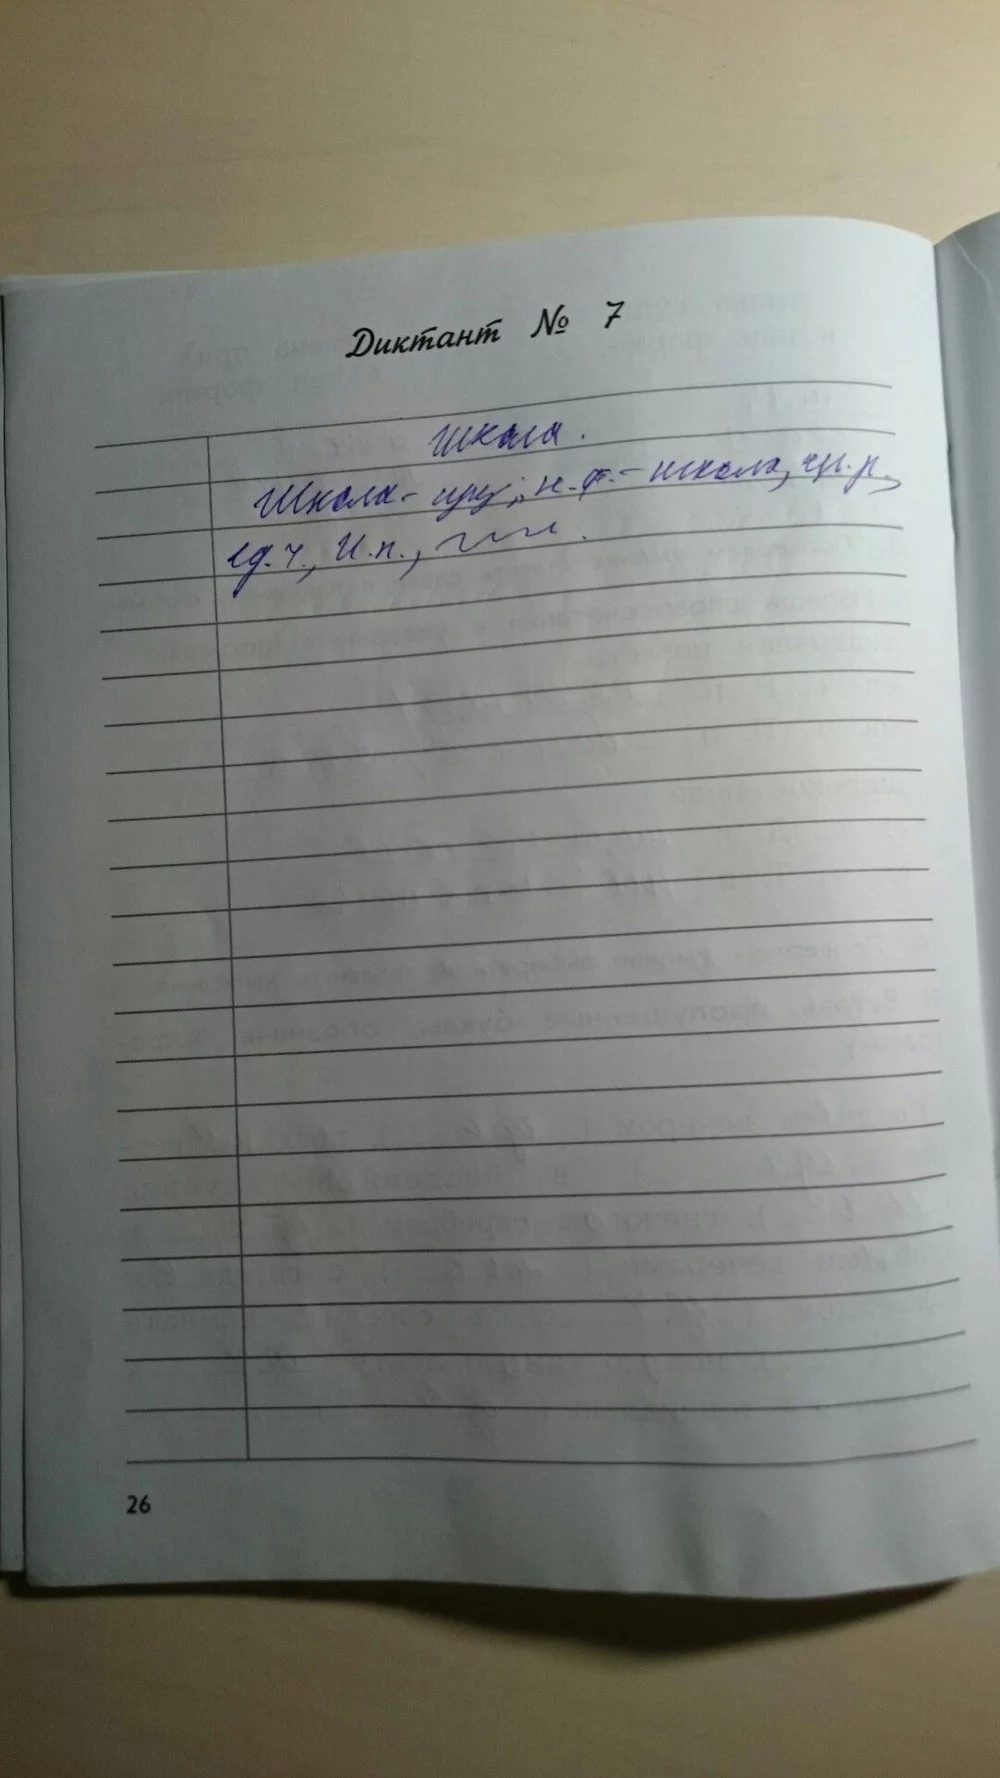 Диктант № 7
Школа.
Школа - сущ., н.ф. - школа, ж.р.,
ед.ч., И.п.,
26